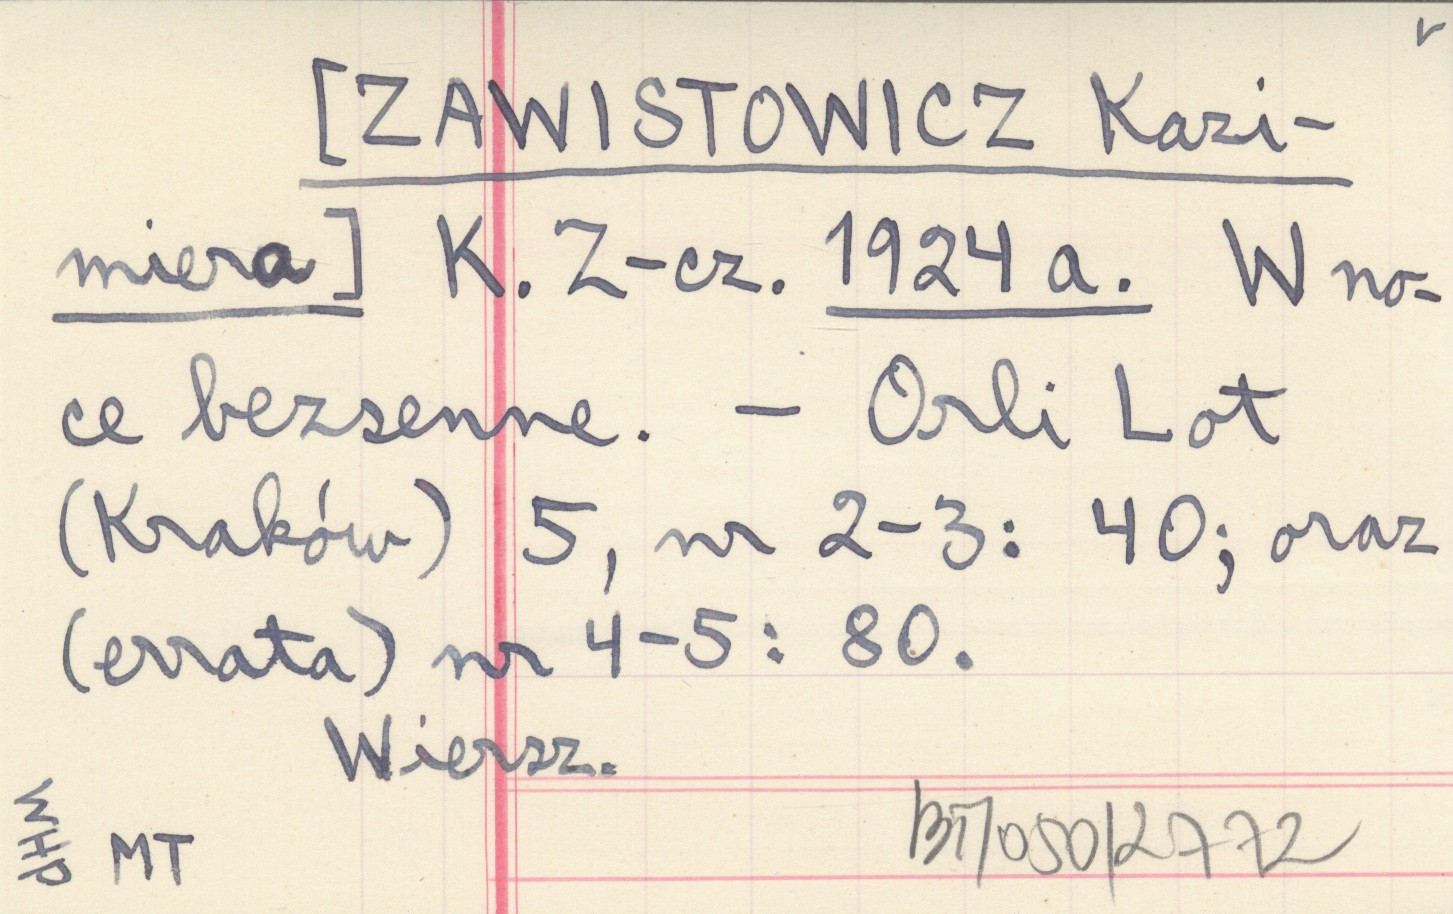 [ZAWISTOWICZ Kazi-
miera] K. Z-cz. 1924 a. W no-
ce bezsenne. – Orli Lot
(Kraków) 5, nr 2-3: 40; oraz
(errata) nr 4-5: 80.
Wiersz.
WHP
MT
BT/050/2772